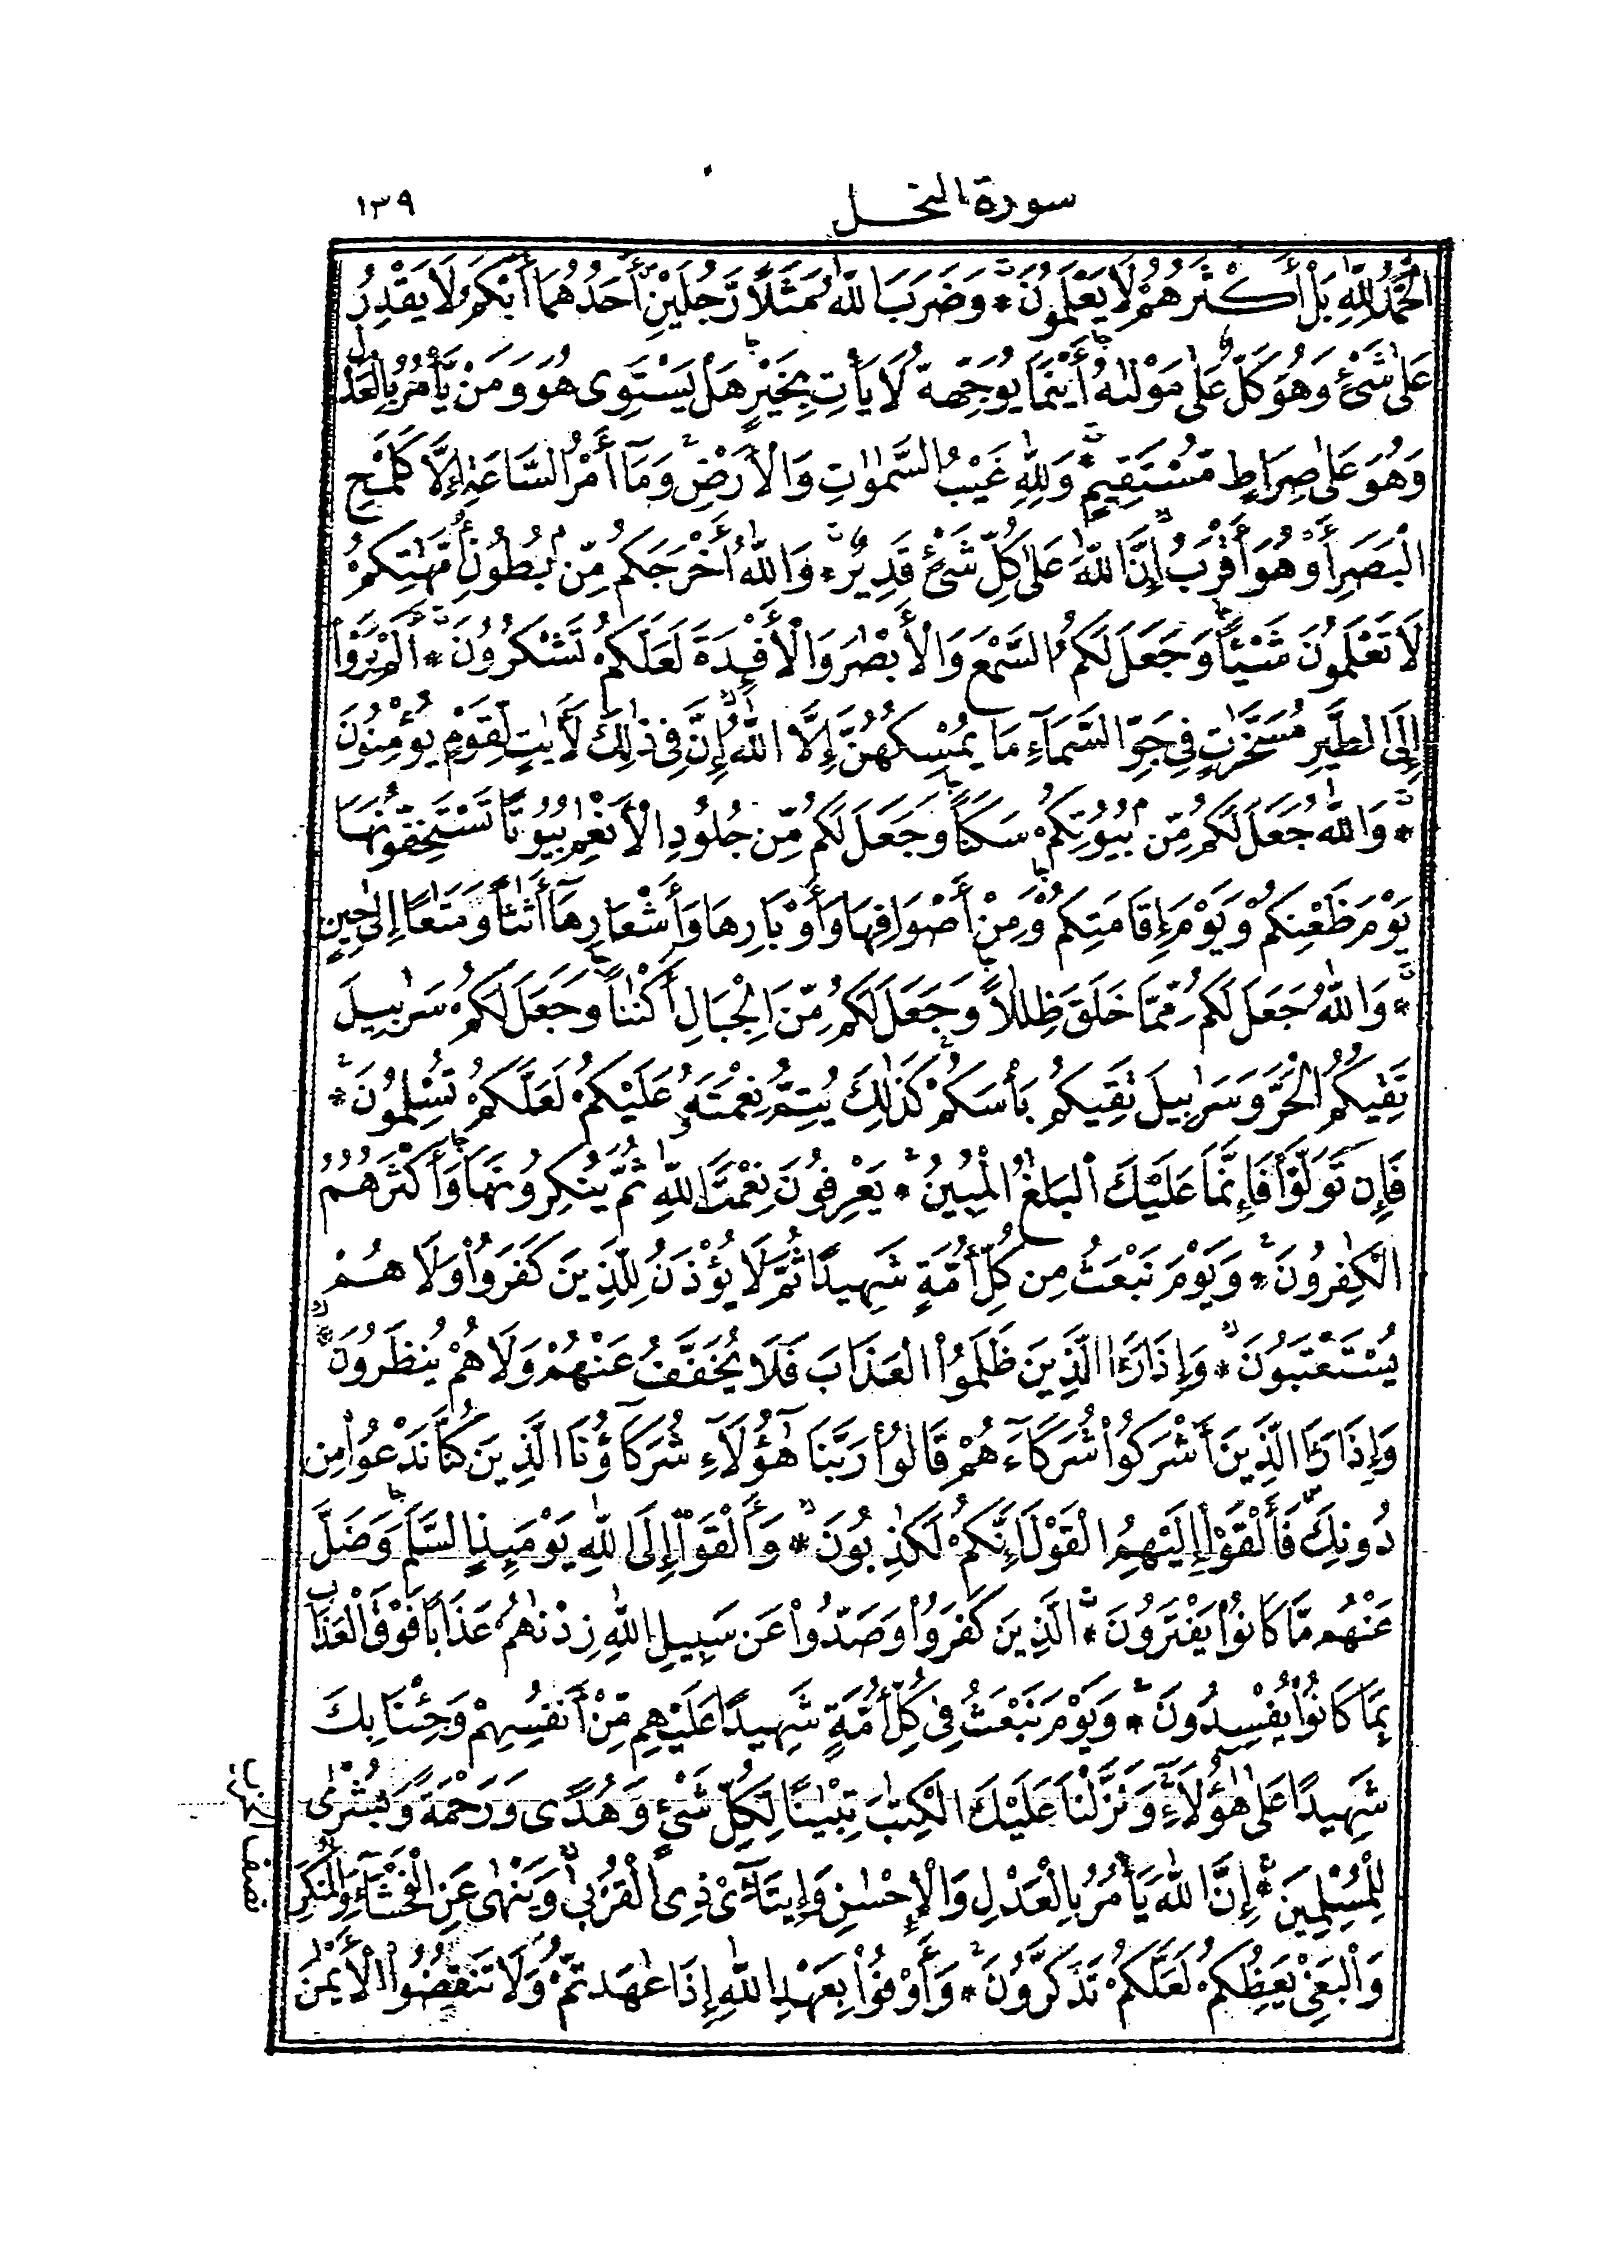 سورة النحل
١٣٩
الْحَمْدُ لِلَّهِ بَلْ أَكْثَرُهُمْ لَا يَعْلَمُونَ * وَضَرَبَ اللَّهُ مَثَلًا رَّجُلَيْنِ أَحَدُهُمَا أَبْكَمُ لَا يَقْدِرُ
عَلَىٰ شَيْءٍ وَهُوَ كَلٌّ عَلَىٰ مَوْلَىٰهُ أَيْنَمَا يُوَجِّههُّ لَا يَأْتِ بِخَيْرٍ هَلْ يَسْتَوِى هُوَ وَمَنْ يَأْمُرُ بِالْعَدْلِ
وَهُوَ عَلَىٰ صِرَاطٍ مُّسْتَقِيمٍ * وَلِلَّهِ غَيْبُ السَّمَٰوَٰتِ وَالْأَرْضِ وَمَا أَمْرُ السَّاعَةِ إِلَّا كَلَمْحِ
الْبَصَرِ أَوْ هُوَ أَقْرَبُ إِنَّ اللَّهَ عَلَىٰ كُلِّ شَيْءٍ قَدِيرٌ * وَاللَّهُ أَخْرَجَكُم مِّن بُطُونِ أُمَّهَٰتِكُمْ
لَا تَعْلَمُونَ شَيْئًا وَجَعَلَ لَكُمُ السَّمْعَ وَالْأَبْصَٰرَ وَالْأَفْئِدَةَ لَعَلَّكُمْ تَشْكُرُونَ * أَلَمْ يَرَوْا
إِلَى الطَّيْرِ مُسَخَّرَٰتٍ فِي جَوِّ السَّمَآءِ مَا يُمْسِكُهُنَّ إِلَّا اللَّهُ إِنَّ فِي ذَٰلِكَ لَأَيَٰتٍ لِّقَوْمٍ يُؤْمِنُونَ
* وَاللَّهُ جَعَلَ لَكُم مِّن بُيُوتِكُمْ سَكَنًا وَجَعَلَ لَكُم مِّن جُلُودِ الْأَنْعَٰمِ بُيُوتًا تَسْتَخِفُّونَهَا
يَوْمَ ظَعْنِكُمْ وَيَوْمَ إِقَامَتِكُمْ وَمِنْ أَصْوَافِهَا وَأَوْبَارِهَا وَأَشْعَارِهَآ أَثَٰثًا وَمَتَٰعًا إِلَىٰ حِينٍ
* وَاللَّهُ جَعَلَ لَكُم مِّمَّا خَلَقَ ظِلَٰلًا وَجَعَلَ لَكُم مِّنَ الْجِبَالِ أَكْنَٰنًا وَجَعَلَ لَكُمْ سَرَٰبِيلَ
تَقِيكُمُ الْحَرَّ وَسَرَٰبِيلَ تَقِيكُم بَأْسَكُمْ كَذَٰلِكَ يُتِمُّ نِعْمَتَهُ عَلَيْكُمْ لَعَلَّكُمْ تُسْلِمُونَ *
فَإِن تَوَلَّوْا فَإِنَّمَا عَلَيْكَ الْبَلَٰغُ الْمُبِينُ * يَعْرِفُونَ نِعْمَتَ اللَّهِ ثُمَّ يُنكِرُونَهَا وَأَكْثَرُهُمُ
الْكَٰفِرُونَ * وَيَوْمَ نَبْعَثُ مِن كُلِّ أُمَّةٍ شَهِيدًا ثُمَّ لَا يُؤْذَنُ لِلَّذِينَ كَفَرُوا وَلَا هُمْ
يُسْتَعْتَبُونَ * وَإِذَا رَءَا الَّذِينَ ظَلَمُوا الْعَذَابَ فَلَا يُخَفَّفُ عَنْهُمْ وَلَا هُمْ يُنظَرُونَ *
وَإِذَا رَءَا الَّذِينَ أَشْرَكُوا شُرَكَآءَهُمْ قَالُوا رَبَّنَا هَٰٓؤُلَآءِ شُرَكَآؤُنَا الَّذِينَ كُنَّا نَدْعُوا مِن
دُونِكَ فَأَلْقَوْا إِلَيْهِمُ الْقَوْلَ إِنَّكُمْ لَكَٰذِبُونَ * وَأَلْقَوْا إِلَى اللَّهِ يَوْمَئِذٍ السَّلَمَ وَضَلَّ
عَنْهُم مَّا كَانُوا يَفْتَرُونَ * الَّذِينَ كَفَرُوا وَصَدُّوا عَن سَبِيلِ اللَّهِ زِدْنَٰهُمْ عَذَابًا فَوْقَ الْعَذَابِ
بِمَا كَانُوا يُفْسِدُونَ * وَيَوْمَ نَبْعَثُ فِى كُلِّ أُمَّةٍ شَهِيدًا عَلَيْهِم مِّنْ أَنفُسِهِمْ وَجِئْنَا بِكَ
شَهِيدًا عَلَىٰ هَٰٓؤُلَآءِ وَنَزَّلْنَا عَلَيْكَ الْكِتَٰبَ تِبْيَٰنًا لِّكُلِّ شَيْءٍ وَهُدًى وَرَحْمَةً وَبُشْرَىٰ
لِلْمُسْلِمِينَ * إِنَّ اللَّهَ يَأْمُرُ بِالْعَدْلِ وَالْإِحْسَٰنِ وَإِيتَآئِ ذِى الْقُرْبَىٰ وَيَنْهَىٰ عَنِ الْفَحْشَآءِ وَالْمُنكَرِ
وَالْبَغْىِ يَعِظُكُمْ لَعَلَّكُمْ تَذَكَّرُونَ * وَأَوْفُوا بِعَهْدِ اللَّهِ إِذَا عَٰهَدتُّمْ وَلَا تَنقُضُوا الْأَيْمَٰنَ
نصف